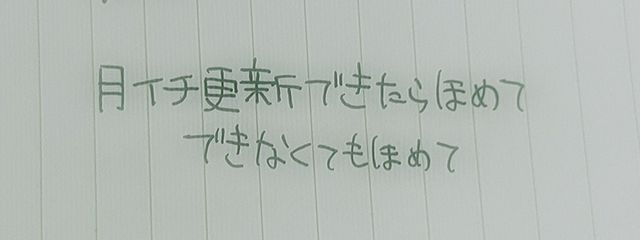 月イチ更新できたらほめて
できなくてもほめて